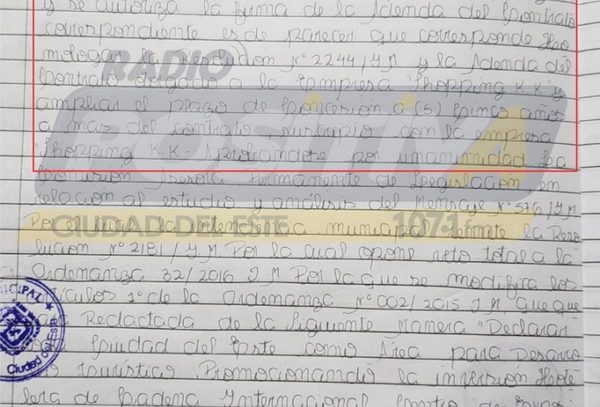 y se autoriza la firma de la Adenda del Contrato
correspondiente es de parecer que corresponde Ho
mologar la resolucion N° 2244/I.M y la Adenda del
Contrato otorgado a la Empresa "Shopping K.K" y
ampliar el plazo de Concesion a (5) Cinco años
a mas del contrato suscripto con la empresa
Shopping K.K- Aprobandose por unanimidad La
Comision Asesora Permanente de Legislación en
relación al estudio y análisis del Mensaje N° 576/I.M
Por la cual la Intendencia municipal remite la Reso
lucion N° 2181/I.M Por la cual opone veto total a la
Ordenanza 32/2016 J.M Por la que se modifica los
ículos 1° de la Ordenanza N° 002/2015 J.M que que
Redactada de la siguiente Manera "Declarar
Ciudad del Este como Area para Desarro
Turística Promocionando la inversión Hote
lera de Cadena Internacional
RADIO
POSITIVA
CIUDAD DEL ESTE 107.1
CIPAL
Ciudad del Este